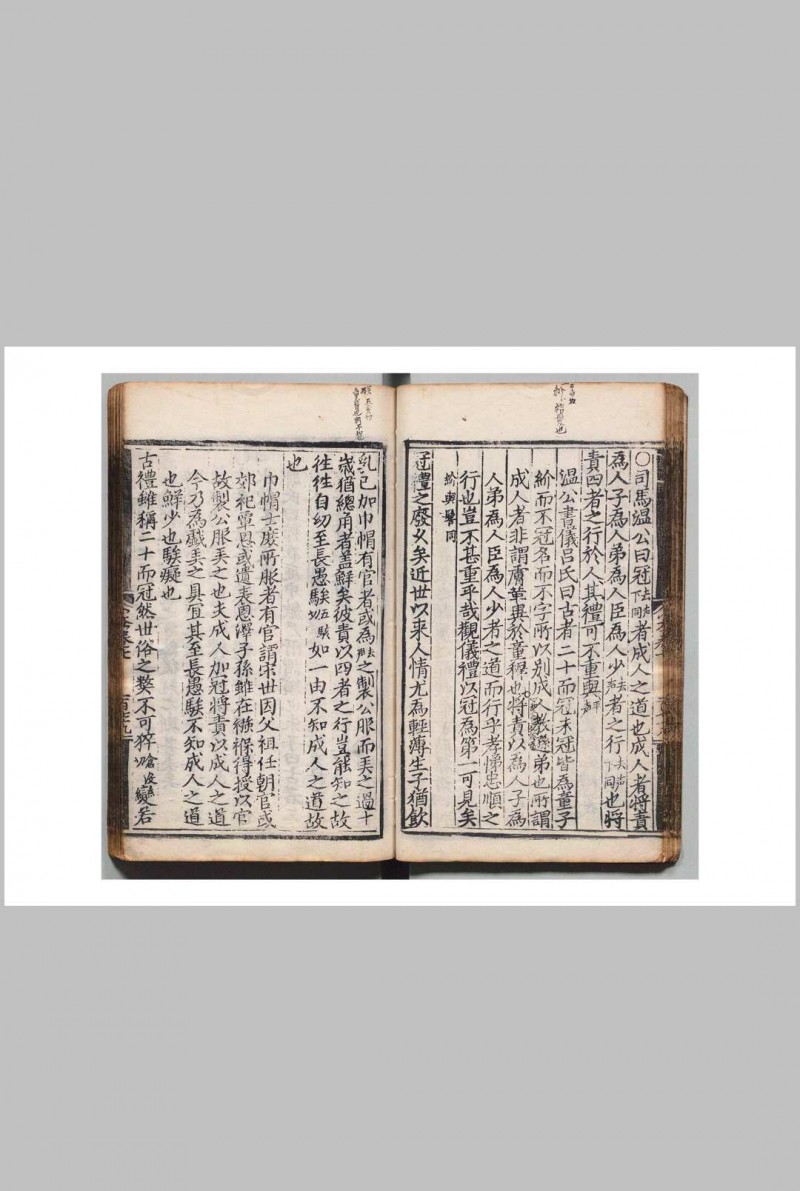 ○司馬溫公曰冠去声下同者成人之道也成人者將責
為人子為人弟為人臣為人少去声者之行去声下同也將
責四者之行於人其禮可不重與平声
溫公書儀呂氏曰古者二十而冠未冠皆為童子
紒而不冠名而不字所以別成人教遜弟也所謂
成人者非謂膚革異於童稺也將責以為人子為
人弟為人臣為人少者之道而行乎孝悌忠順之
行也豈不甚重乎哉觀儀禮以冠為第一可見矣
紒與髻同
冠禮之廢久矣近世以來人情尤為輕薄生子猶飲
乳已加巾帽有官者或為去声之製公服而弄之過十
歲猶總角者盖鮮矣彼責以四者之行豈能知之故
徃徃自幼至長愚騃五駭切如一由不知成人之道故
也
巾帽士庶所服者有官謂宋世因父祖任朝官或
郊祀覃恩或遺表恩澤子孫雖在襁褓得授以官
故製公服弄之也夫成人加冠將責以成人之道
今乃為戲弄之具宜其至長愚騃不知成人之道
也鮮少也騃癡也
古禮雖稱二十而冠然世俗之弊不可猝變若